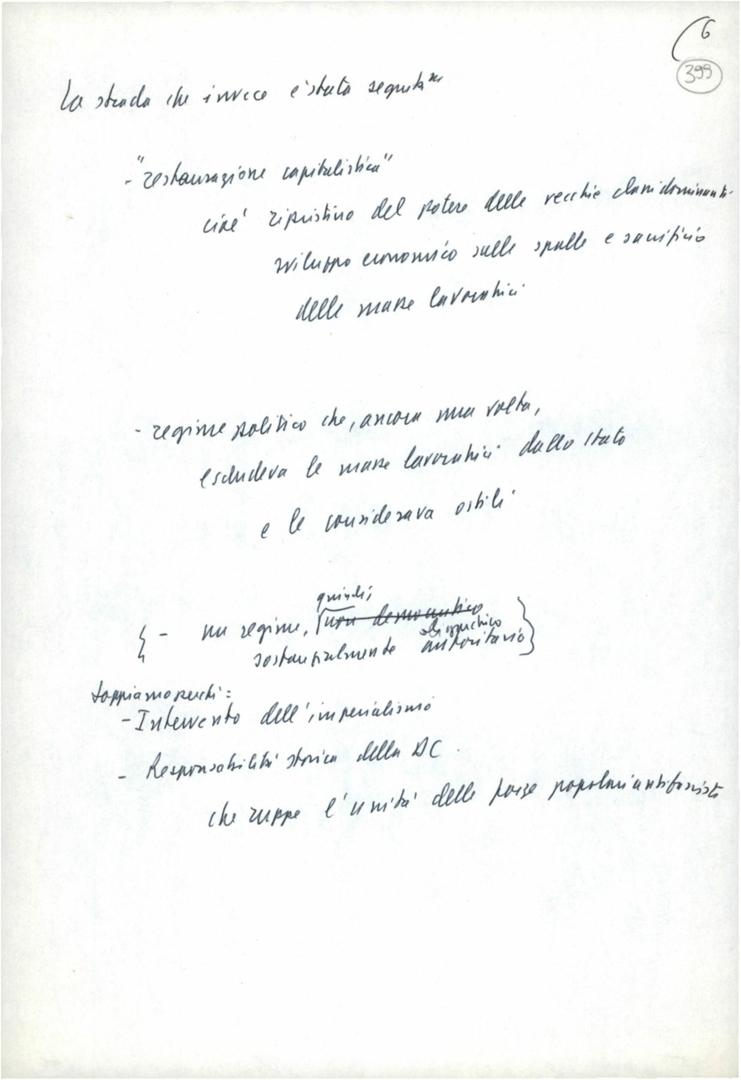 6
399
La strada che invece è stata seguita
- "restaurazione capitalistica"
cioè ripristino del potere delle vecchie classi dominanti
sviluppo economico sulle spalle e sacrificio
delle masse lavoratrici
- regime politico che, ancora una volta,
escludeva le masse lavoratrici dallo stato
e le considerava ostili
quindi,
{ - un regime, non democratico
oligarchico
sostanzialmente autoritario }
sappiamo perché:
- Intervento dell'imperialismo
- Responsabilità storica della DC
che ruppe l'unità delle forze popolari antifasciste